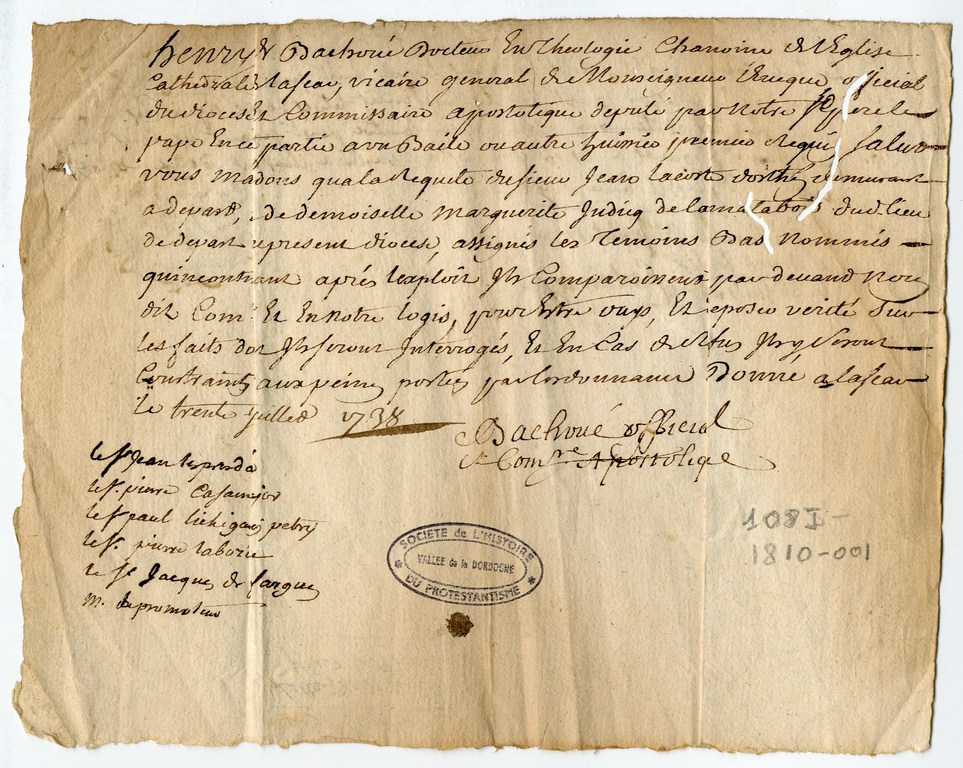 henry de Bachoué Docteur En theologie Chanoine de l'Eglise
Cathedrale de lascar, vicaire general de Monseigneur l'Eveque official
du diocese et Commissaire apostolique deputé par notre St pere le
pape En ce partie a un Baile ou autre huissier premier requis salut
vous mandons qu'a la Requete du sieur Jean lacoste d'orthes demurant
a depart, de demoiselle marguerite Judicq de lamatabois du d. lieu
de depart upresent diocese, assignés les temoins Bas nommés
qu'incontinant aprés l'exploit Ils Comparoissent par devand nou
dit Comre Et En notre logis, pour Estre ouys, Et deposer verité sur
les faits dot Ils seront Interrogés, Et En Cas de refus Ils y seront
Constraints aux peines portées par l'ordonnance Donné a lascar
le trente juilled 1738
Bachoué official
et Comre Apostolique
le Sr Jean
le Sr. pierre Casamajor
le Sr. paul
le Sr. pierre laborie
le Sr Jacques de Largues
Mr. le promoteur
SOCIETE de L'HISTOIRE
VALLEE de la DORDOGNE
DU PROTESTANTISME
108I-
1810-001